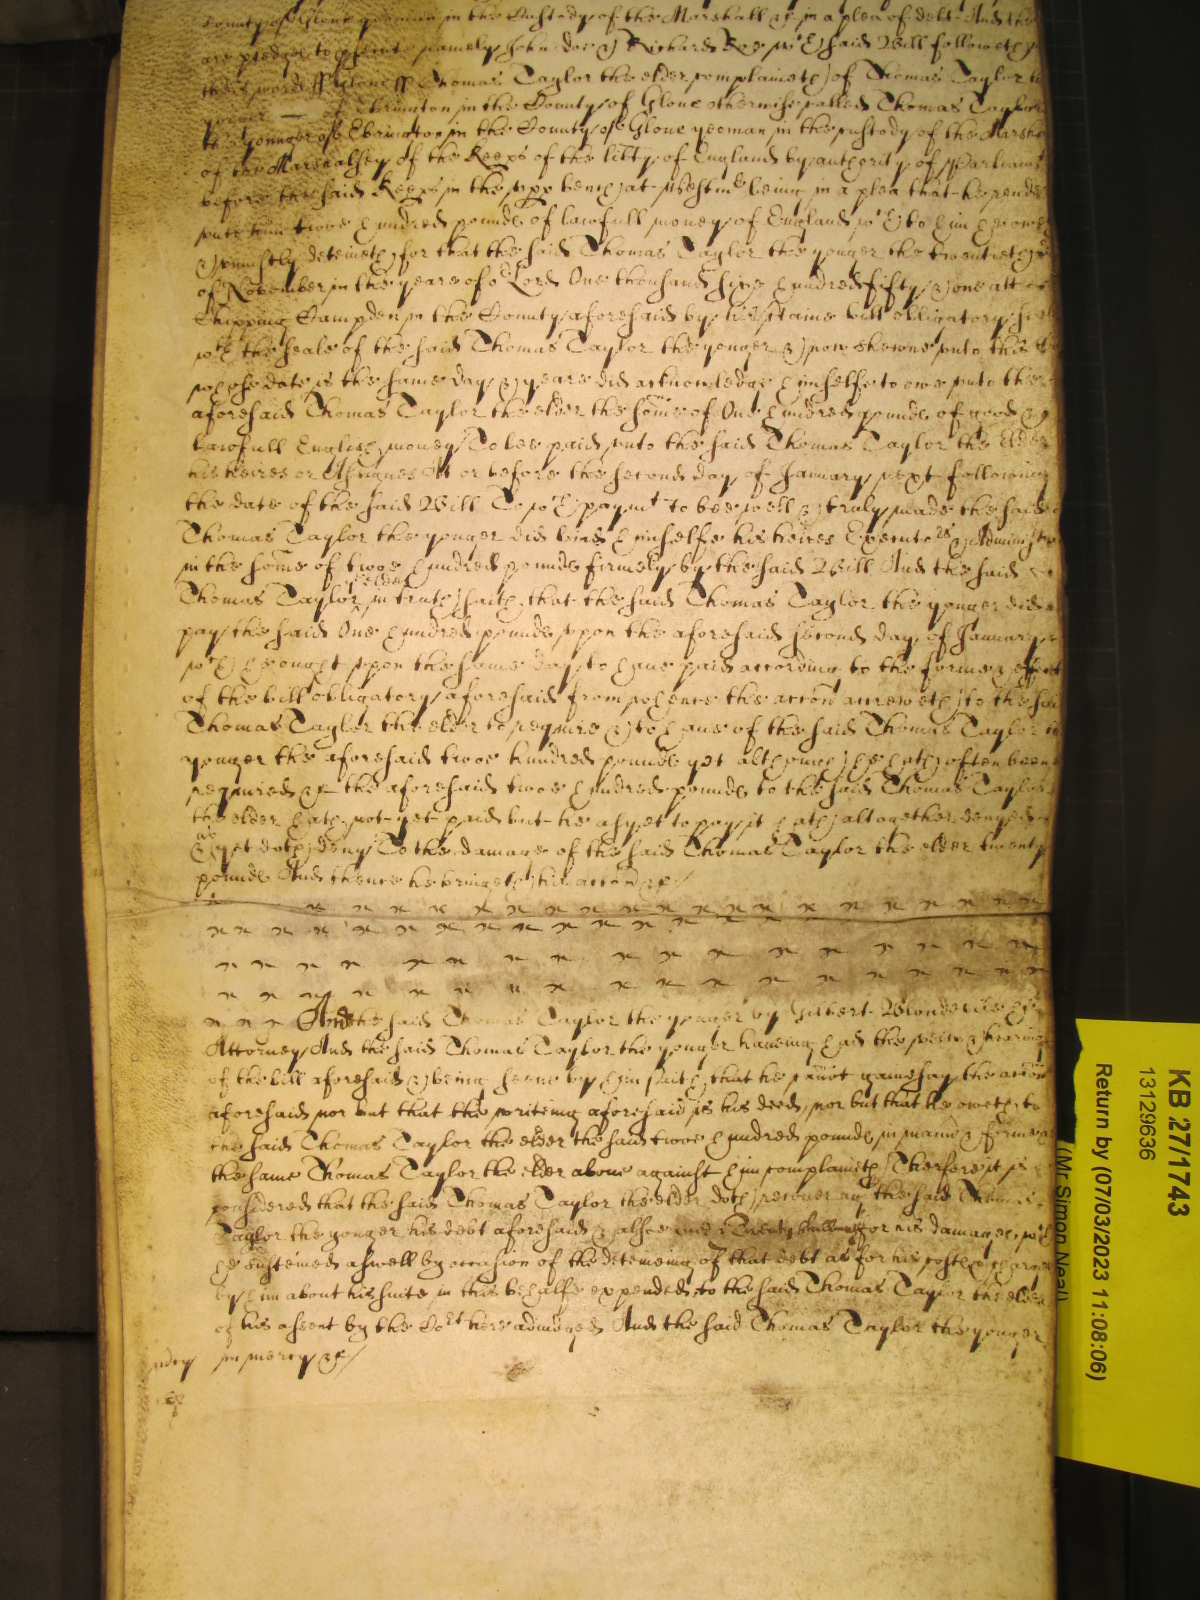 County of Glouc yeoman in the Custody of the Marshall &c in a plea of debt And there
are pledges to psecute namely John doe & Richard Roe wch said Bill followeth in
these words ss Glouc ss Thomas Taylor the elder complaineth of Thomas Taylor the
yonger of Ebrington in the County of Glouc otherwise called Thomas Taylor
the yonger of Ebrington in the County of Glouc yeoman in the custody of the Marshall
of the Marshalsey of the Keeps of the libty of England by authority of Parliamt
before the said Keeps in the upp bench at Westmr being in a plea that he render
unto him twoe hundred pounds of lawfull money of England wch to him he oweth
& uniustly deteineth for that the said Thomas Taylor the yonger the twentieth day
of November in the yeare of or Lord One thousand sixe hundred fifty & one att
Chipping Campden in the County aforesaid by his certaine bill obligatory
wth the seale of the said Thomas Taylor the yonger & now shewne unto the
whose date is the same day & yeare did acknowledge himselfe to owe unto the
aforesaid Thomas Taylor the elder the some of One hundred pounds of good &
lawfull English money To bee paid unto the said Thomas Taylor the Elder
his heires or Assignes Att or before the second day of January next following
the date of the said Bill To wch paymt to bee well & truly made the said
Thomas Taylor the yonger did bind himselfe his heires Executors & Administrs
in the some of twoe hundred pounds firmely by the said Bill And the said
Thomas Taylor the elder in truth saith that the said Thomas Taylor the yonger did not
pay the said One hundred pounds upon the aforesaid second day of January
wch he ought upon the same day to have paid according to the forme & effect
of the bill obligatory aforesaid from whence the accon accreweth to the said
Thomas Taylor the elder to require & to have of the said Thomas Taylor the
yonger the aforesaid twoe hundred pounds yet although he hath often been
required &c the aforesaid twoe hundred pounds to the said Thomas Taylor
the elder hath not yet paid but he as yet to pay it hath altogether denyed
& as yet doth deny To the damage of the said Thomas Taylor the elder twenty
pounds And thence he bringeth his accon &c
And the said Thomas Taylor the yonger by Gilbert his
Attorney And the said Thomas Taylor the yonger haveing had the veiw & heareing
of the bill aforesaid & being heard by him saith that he cannot gainesay the accon
aforesaid nor but that the writeing aforesaid is his deed nor but that he oweth to
the said Thomas Taylor the elder the said twoe hundred pounds in mannr & forme as
the same Thomas Taylor the elder above against him complaineth Therfore it is
considered that the said Thomas Taylor the elder doth recover agt the said Thomas
Taylor the yonger his debt aforesaid & alsoe Twenty shillings for his damages wch
he susteined aswell by occasion of the deteineing of that debt as for his costs & charges
by him about his suite in this behalfe expended to the said Thomas Taylor the elder
of his assent by the Cort here adiudged And the said Thomas Taylor the yonger
in mercy &c